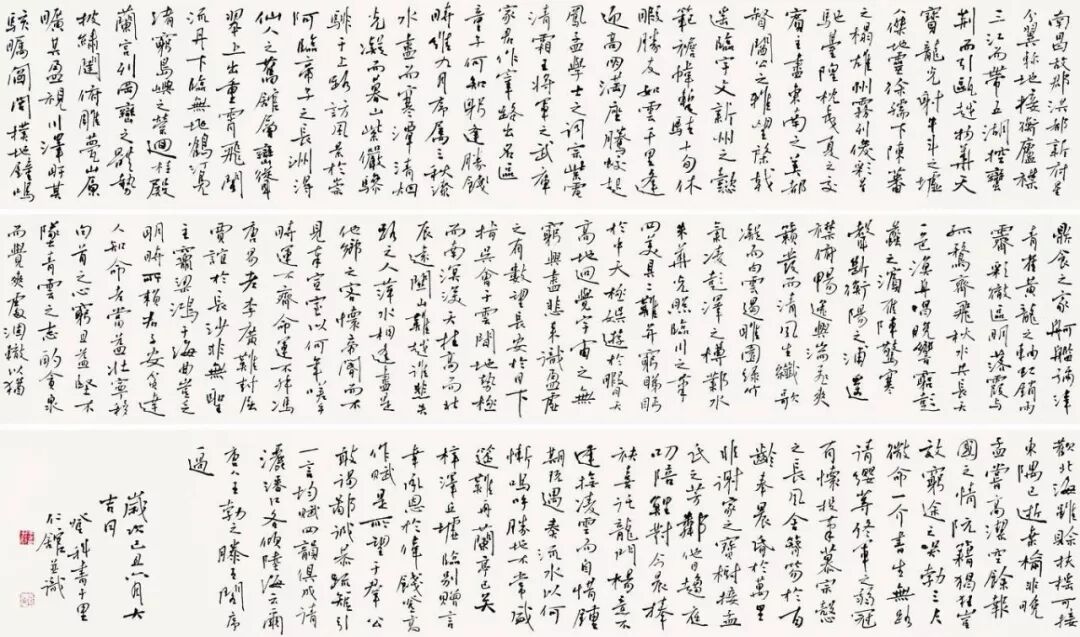 南昌故郡洪都新府星
分翼軫地接衡廬襟
三江而帶五湖控蠻
荆而引甌越物華天
寶龍光射牛斗之墟
傑地靈徐孺下陳蕃
之榻雄州霧列俊彩星
馳臺隍枕夷夏之交
賓主盡東南之美都
督閻公之雅望棨戟
遙臨宇文新州之懿
範襜帷暫駐十旬休
暇勝友如雲千里逢
迎高朋滿座騰蛟起
鳳孟學士之詞宗紫電
清霜王將軍之武庫
家君作宰路出名區
童子何知躬逢勝餞
時維九月序屬三秋潦
水盡而寒潭清烟
光凝而暮山紫儼驂
騑于上路訪風景於崇
阿臨帝子之長洲得
仙人之舊館層巒聳
翠上出重霄飛閣
流丹下臨無地鶴汀鳧
渚窮島嶼之縈迴桂殿
蘭宮列岡巒之體勢
披繡闥俯雕甍山原
曠其盈視川澤盱其
駭矚閭閻撲地鐘鳴
鼎食之家舸艦彌津
青雀黃龍之軸虹銷雨
霽彩徹區明落霞與
孤鶩齊飛秋水共長天
一色漁舟唱晚響窮彭
蠡之濱雁陣驚寒
聲斷衡陽之浦遙
襟俯暢逸興湍飛爽
籟發而清風生纖歌
凝而白雲遏睢園綠竹
氣凌彭澤之樽鄴水
朱華光照臨川之筆
四美具二難并窮睇眄
於中天極娛遊於暇日天
高地迥覺宇宙之無
窮興盡悲來識盈虛
之有數望長安於日下
指吳會于雲間地勢極
而南溟深天柱高而北
辰遠關山難越誰悲失
路之人萍水相逢盡是
他鄉之客懷帝閽而不
見奉宣室以何年嗟乎
時運不齊命運不殊馮
唐易老李廣難封屈
賈誼於長沙非無聖
主竄梁鴻于海曲豈乏
明時所賴君子安貧達
人知命老當益壯寧移
白首之心窮且益堅不
墜青雲之志酌貪泉
而覺爽處涸轍以猶
歡北海雖賒扶搖可接
東隅已逝桑榆非晚
孟嘗高潔空餘報
國之情阮籍猖狂豈
效窮途之哭勃三尺
微命一介書生無路
請纓等終軍之弱冠
有懷投筆慕宗慤
之長風舍簪笏於百
齡奉晨昏於萬里
非謝家之寶樹接孟
氏之芳鄰他日趨庭
叨陪鯉對今晨捧
袂喜託龍門楊意不
逢撫凌雲而自惜鍾
期既遇奏流水以何
慚嗚呼勝地不常盛
筵難再蘭亭已矣
梓澤丘墟臨別贈言
幸承恩於偉餞登高
作賦是所望于群公
敢竭鄙誠恭疏短引
一言均賦四韻俱成請
灑潘江各傾陸海云爾
唐人王勃之滕王閣序
歲次己丑六月大
吉
科書千里
仁館並識